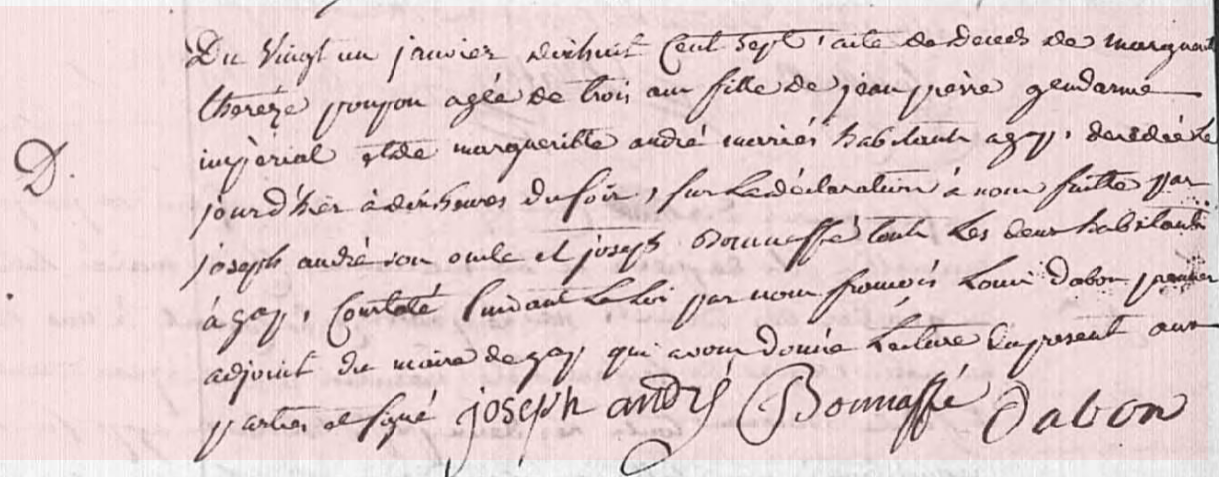 Du vingt un janvier dixhuit cent sept, acte de deces de marguerit
thereze poupon agée de trois ans fille de jean pierre gendarme
impèrial et de margueritte andré mariés habitants a gap, decedée le
jourd'hier à dix heures du soir, sur la déclaration à nous faitte par
joseph andré son oncle et joseph Bonnaffé touts les deux habitants
à gap, Constaté suivant la loi par nous françois Louis Dabon premier
D.
adjoint du maire de gap qui avons donné lecture du present aux
parties et signé joseph andré Bonnaffé Dabon